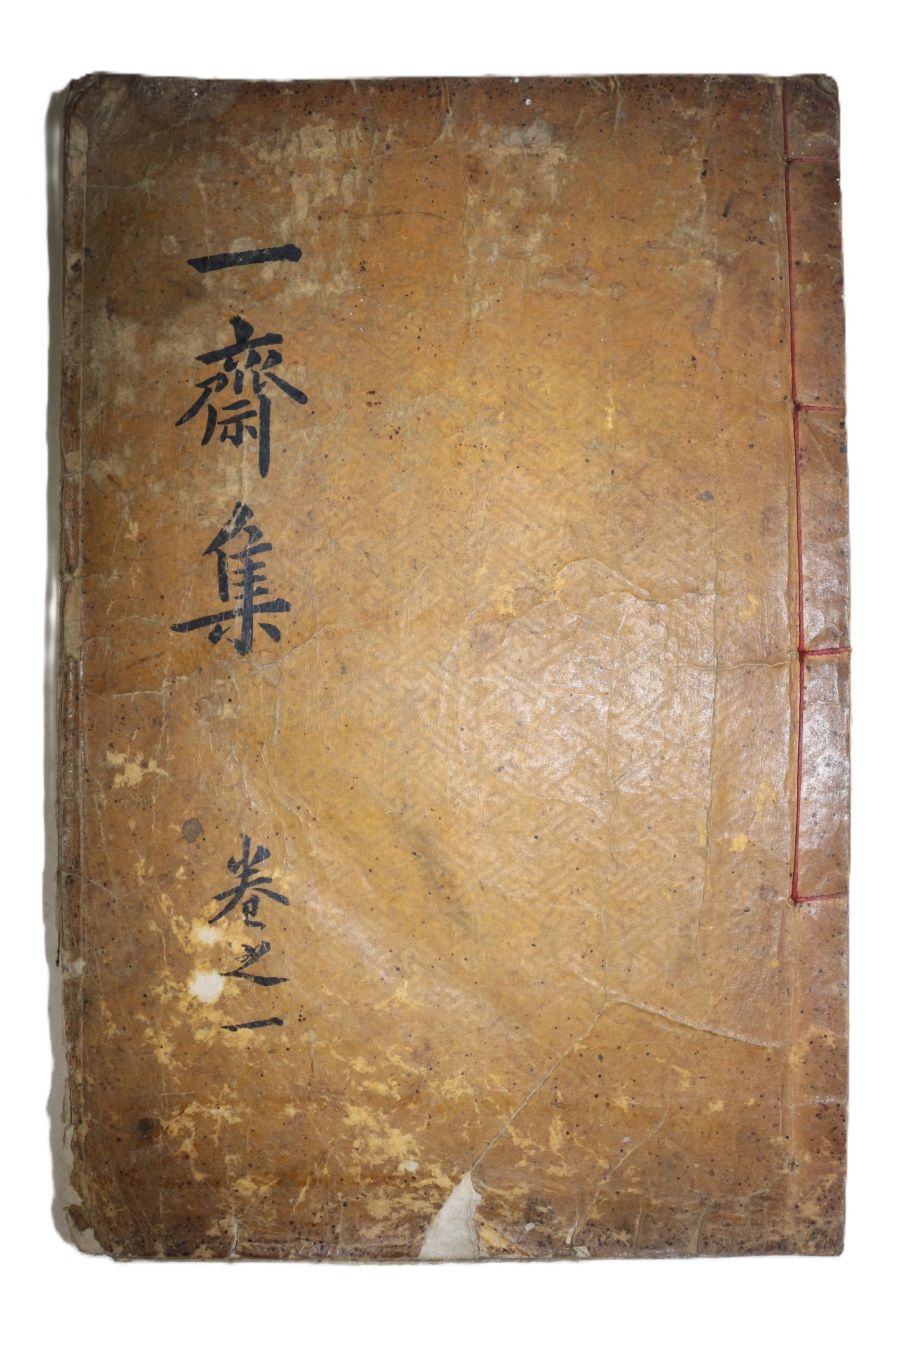 一齋集 卷之一